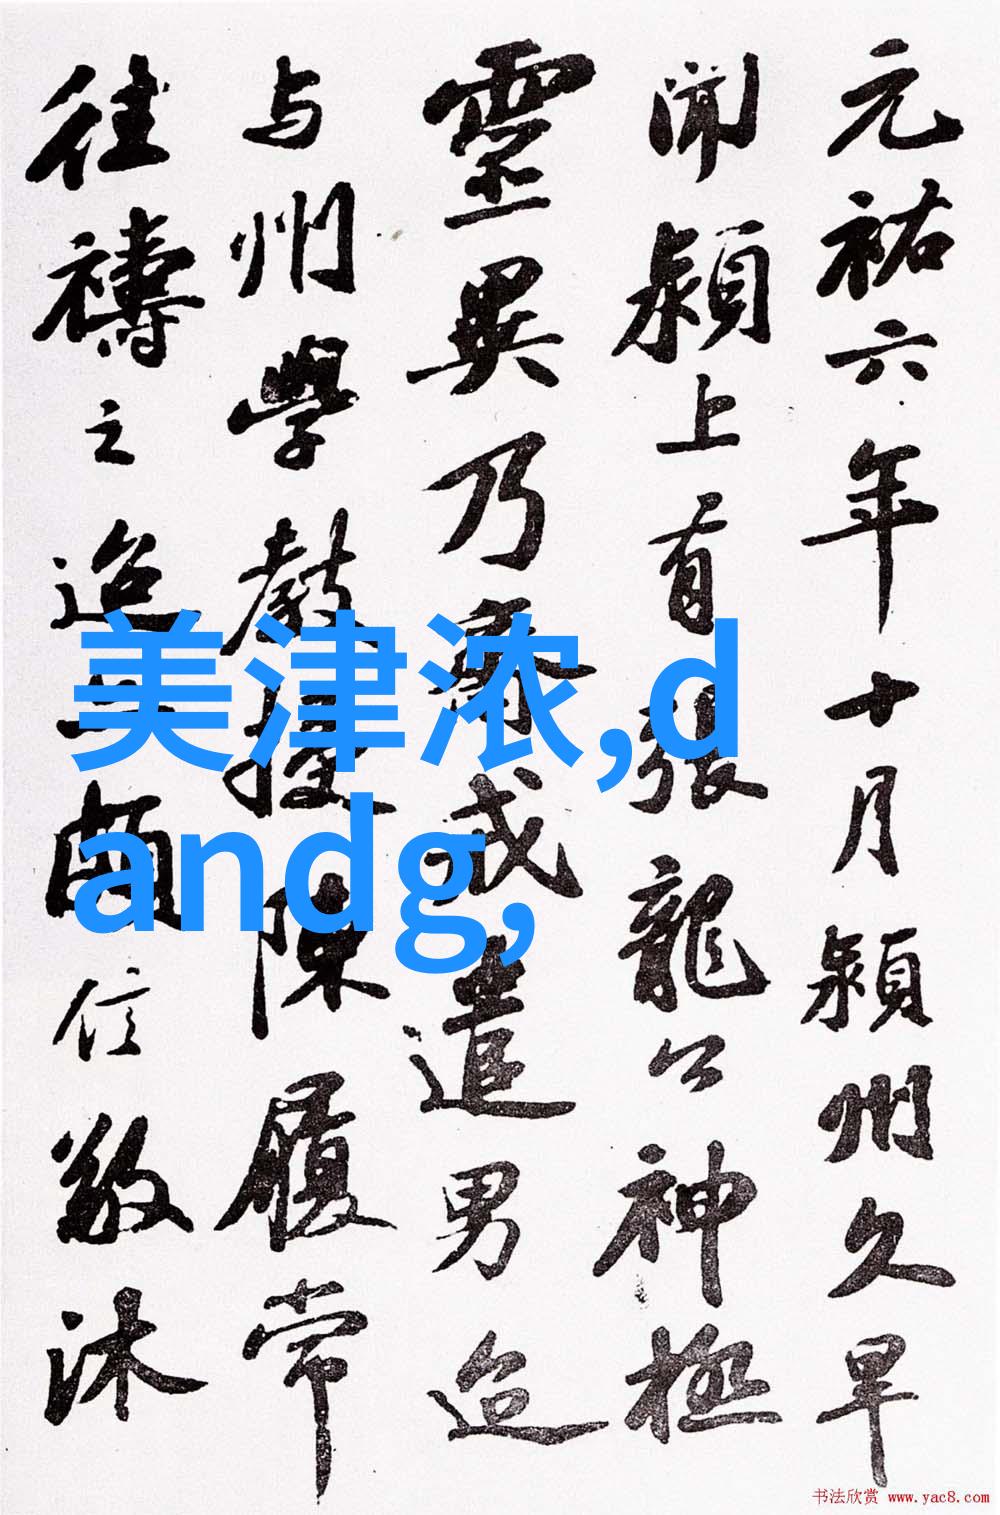 元祐六年十月颍州久旱
闻颍上有張龍公神極
靈異乃齋戒遣男迨
与州學教授陳履常
往禱之迨亦頗信敬沐
美津浓,d
andg,
书法欣赏 www.yac8.com